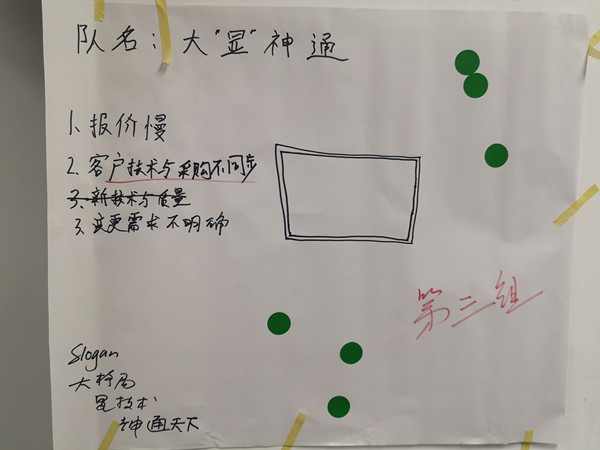 队名：大“显”神通
1、报价慢
2、客户技术与采购不同步
3、新技术与质量
3、变更需求不明确
第三组
Slogan
大格局
显技术
神通天下